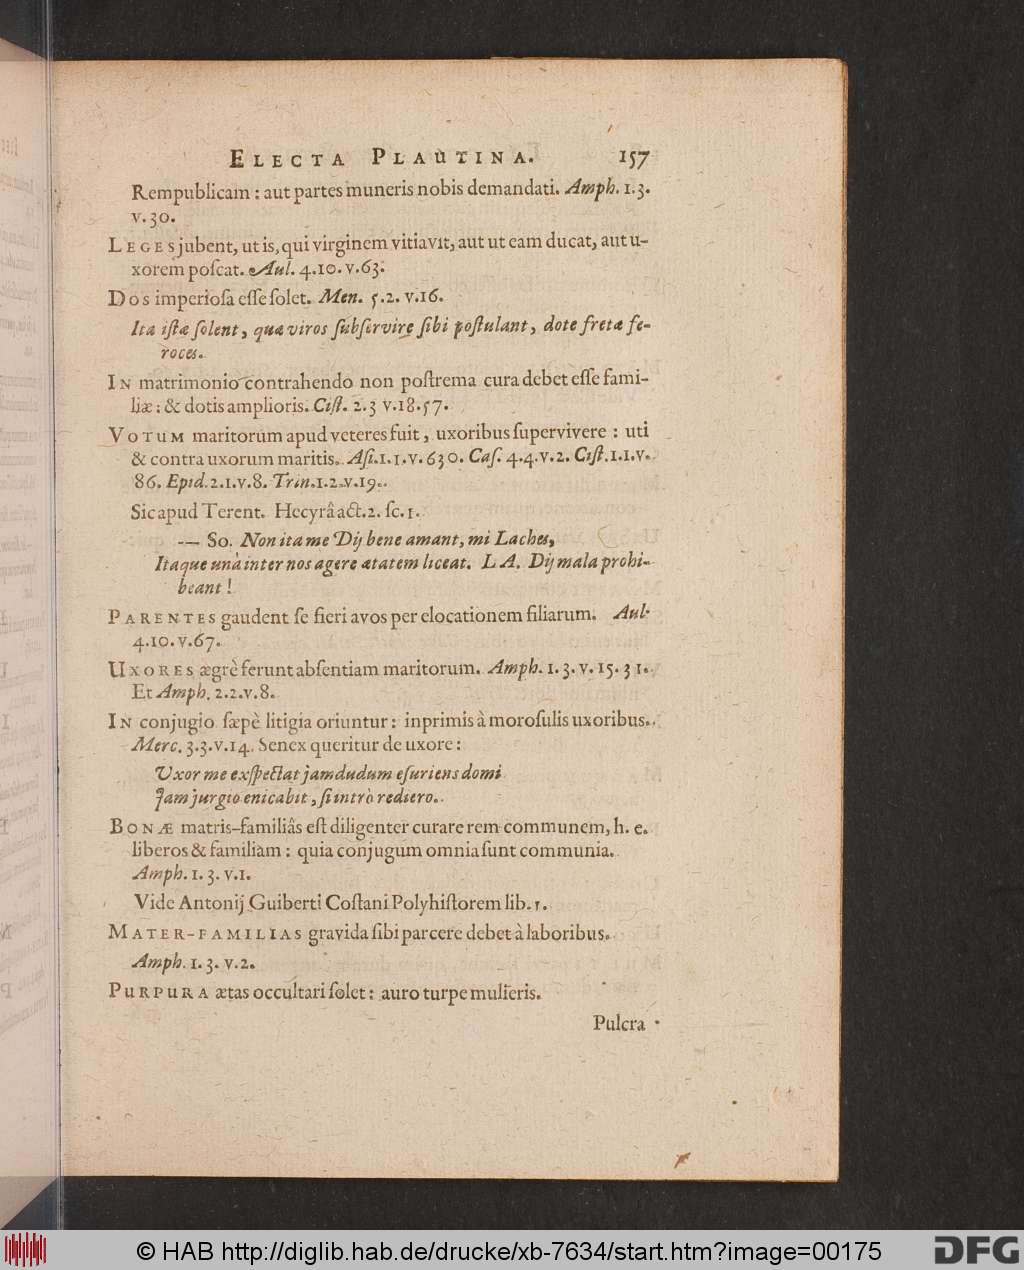 ELECTA PLAUTINA. 157
Rempublicam : aut partes muneris nobis demandati. Amph. 1. 3.
v. 30.
LEGES jubent, ut is, qui virginem vitiavit, aut ut eam ducat, aut u-
xorem poscat. Aul. 4. 10. v. 63.
Dos imperiosa esse solet. Men. 5. 2. v. 16.
Ita istæ solent, quæ viros subservire sibi postulant, dote fretæ fe-
roces.
IN matrimonio contrahendo non postrema cura debet esse fami-
liæ : & dotis amplioris. Cist. 2. 3 v. 18. 57.
VOTUM maritorum apud veteres fuit, uxoribus supervivere : uti
& contra uxorum maritis. Asi. 1. 1. v. 630. Cas. 4. 4. v. 2. Cist. 1. 1. v.
86. Epid. 2. 1. v. 8. Trin. 1. 2. v. 19.
Sic apud Terent. Hecyrâ act. 2. sc. 1.
-— So. Non ita me Dij bene ament, mi Laches,
Itaque unà inter nos agere ætatem liceat. LA. Dij mala prohi-
beant !
PARENTES gaudent se fieri avos per elocationem filiarum. Aul.
4. 10. v. 67.
UXORES ægrè ferunt absentiam maritorum. Amph. 1. 3. v. 15. 31.
Et Amph. 2. 2. v. 8.
IN conjugio sæpè litigia oriuntur : inprimis à morosulis uxoribus.
Merc. 3. 3. v. 14. Senex queritur de uxore :
Uxor me exspectat jamdudum esuriens domi
Jam jurgio enicabit, si intrò rediero.
BONÆ matris-familiâs est diligenter curare rem communem, h. e.
liberos & familiam : quia conjugum omnia sunt communia.
Amph. 1. 3. v. 1.
Vide Antonij Guiberti Costani Polyhistorem lib. 1.
MATER-FAMILIAS gravida sibi parcere debet à laboribus.
Amph. 1. 3. v. 2.
PURPURA ætas occultari solet : auro turpe mulieris.
Pulcra
© HAB http://diglib.hab.de/drucke/xb-7634/start.htm?image=00175
DFG